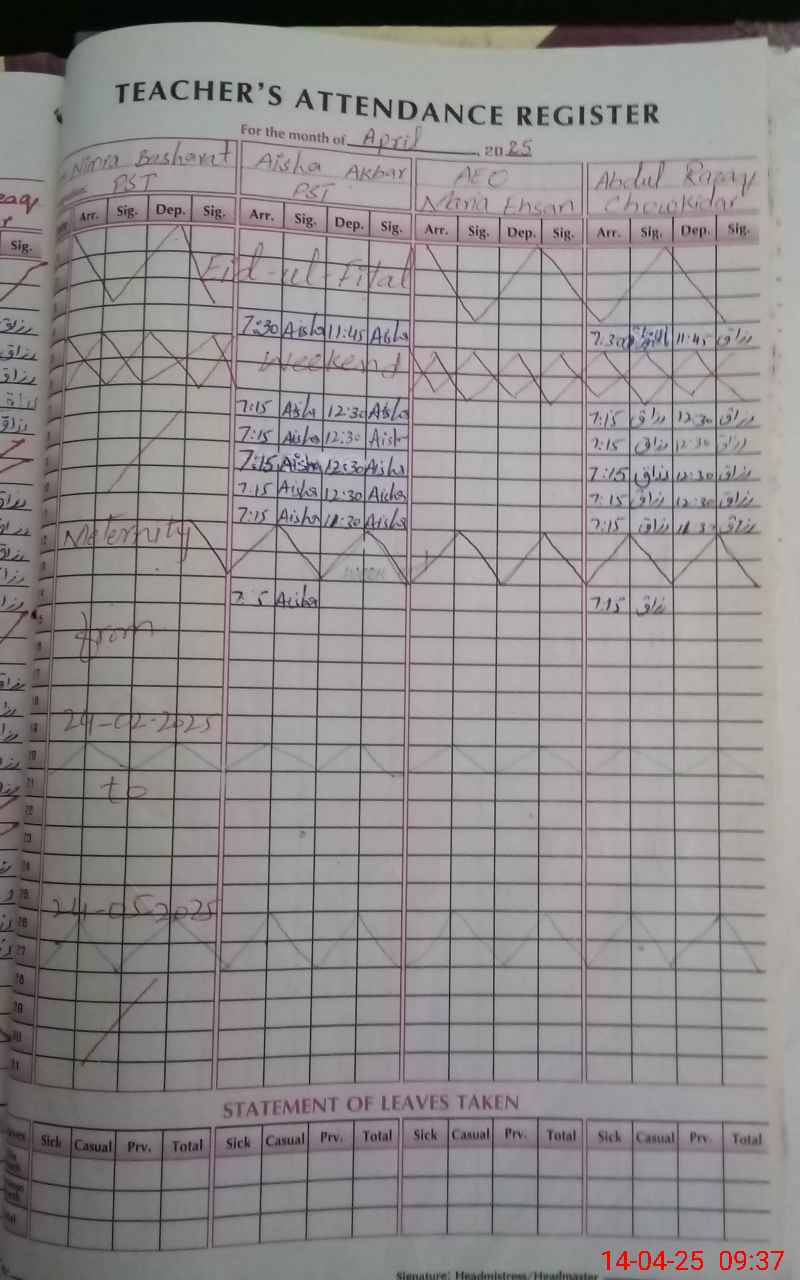 TEACHER'S ATTENDANCE REGISTER
For the month of April, 2025
Nimra Basharat Aisha Akbar AEO Abdul Razaq
PST PST Ehsan Chowkidar
Sig. Arr. Sig. Dep. Sig. Arr. Sig. Dep. Sig. Arr. Sig. Dep. Sig. Arr. Sig. Dep. Sig.
Eid-ul-Fital
7:30 Aisha 11:45 Aisha 7:30 11:45 رزاق
Weekend
7:15 Aisha 12:30 Aisha 7:15 رزاق 12:30 رزاق
7:15 Aisha 12:30 Aish 7:15 رزاق 12:30 رزاق
7:15 Aisha 12:30 Aisha 7:15 رزاق 12:30 رزاق
7:15 Aisha 12:30 Aisha 7:15 رزاق 12:30 رزاق
7:15 Aisha 11:30 Aisha 7:15 رزاق 11:30 رزاق
Meternity
7:15 Aisha 7:15 رزاق
from
16
17
18
24-02-2025
19
20
21
to
22
23
24
25
24-05-2025
26
27
28
29
30
31
STATEMENT OF LEAVES TAKEN
Sick Casual Prv. Total Sick Casual Prv. Total Sick Casual Prv. Total Sick Casual Prv. Total
Signature: Headmistress/Headmaster
14-04-25 09:37